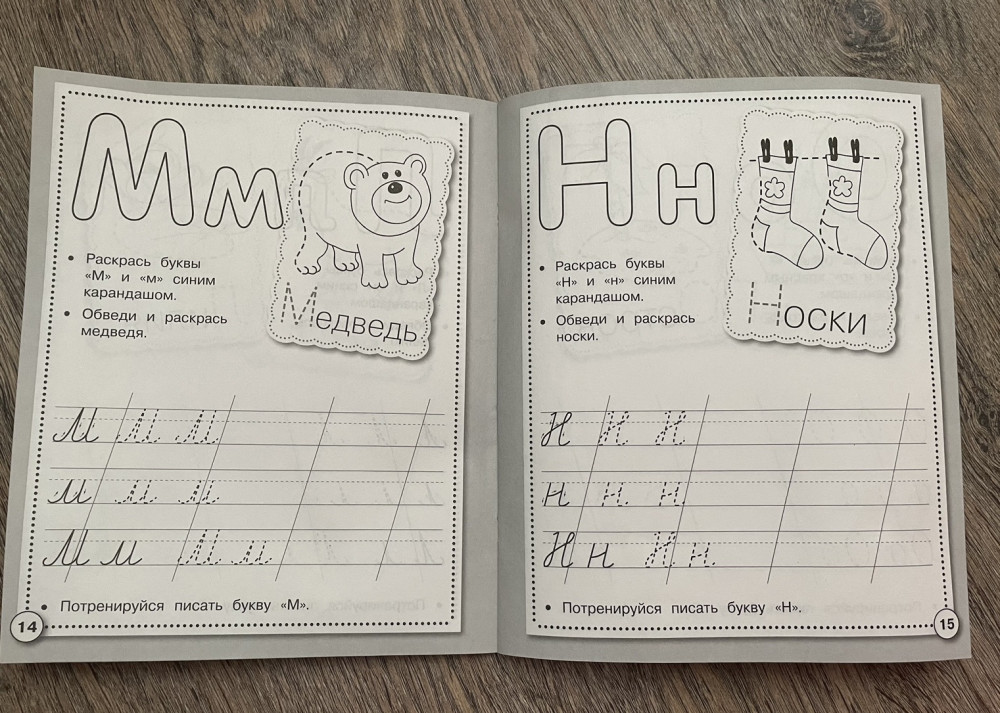 Мм
Раскрась буквы
«М» и «м» синим
карандашом.
Обведи и раскрась
медведя.
Медведь
М М М
м м м
М м М м
Потренируйся писать букву «М».
14
Нн
Раскрась буквы
«Н» и «н» синим
карандашом.
Обведи и раскрась
носки.
Носки
Н Н Н
н н н
Н н Н н
Потренируйся писать букву «Н».
15